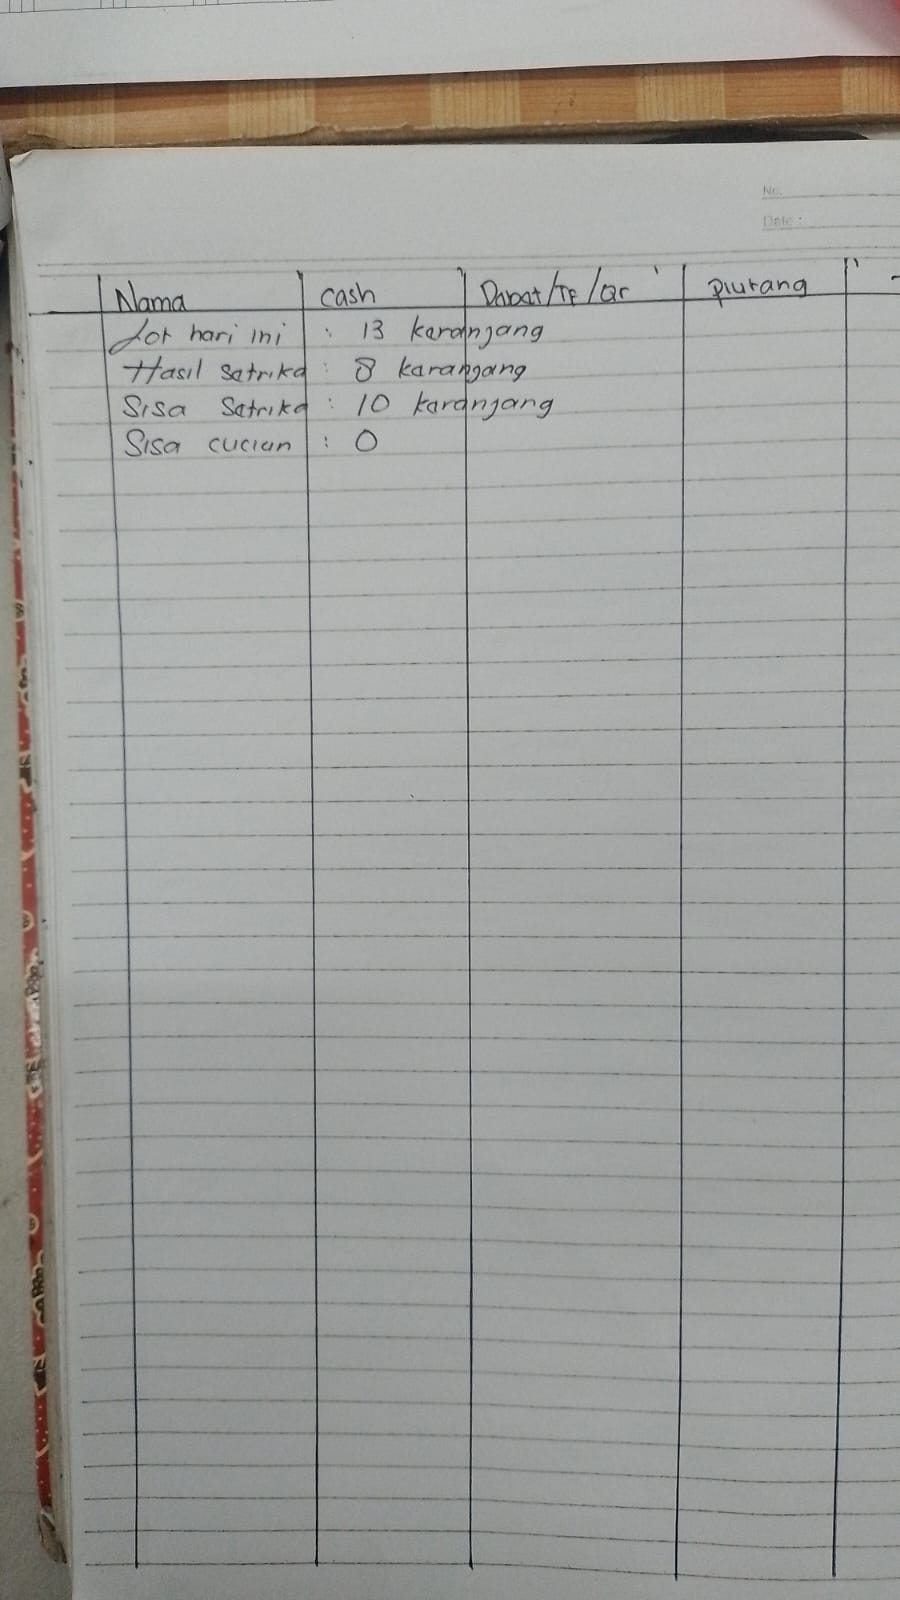 No.
Date :
Nama cash Dabat/TF/Qr piutang
Lot hari ini : 13 karanjang
Hasil Satrika : 8 karangang
Sisa Satrika : 10 karanjang
Sisa cucian : 0